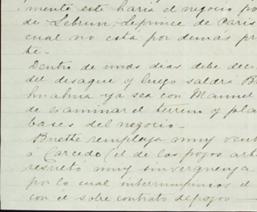 mente este haria el negocio po
de Lebrun Leprince de Paris
cual no está por demás pr
be.
Dentro de unos dias debe dec
del desague y luego saldrá
ya sea con Manuel
de examinar el terreno y pla
bases del negocio.
remplaza muy
a Carcedo (el de los pozos art
resultó muy sinvergüenza
por lo cual interrumpimos el
con el sobre contrato depozos